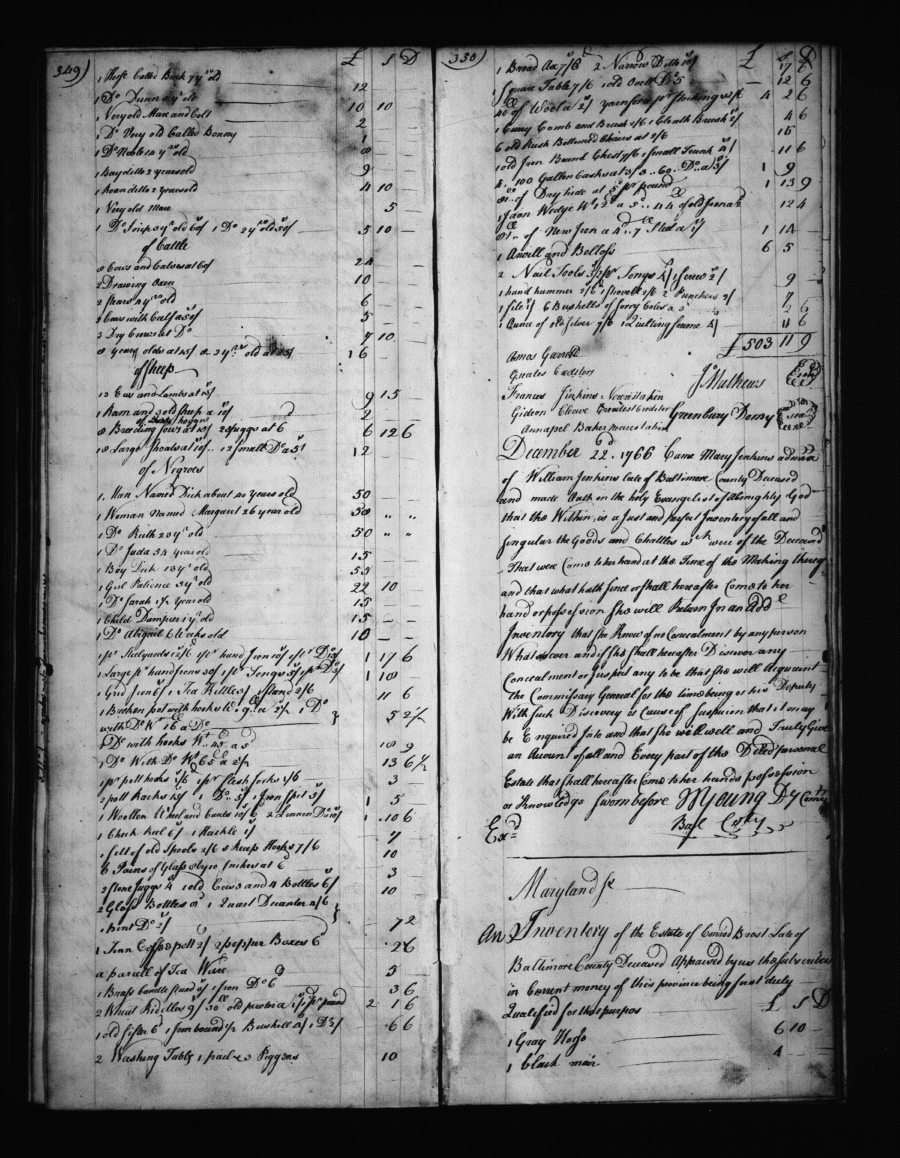 349)
£ S D
1 Horse Called Buck 7 yrs old 12 — —
1 Do Dunn 8 yrs old 10 10 —
1 Very old Mare and Colt 2 — —
1 Do Very old Called Bonny 1 — —
1 Do Noble 14 yrs old 8 — —
1 Bay ditto 2 years old 9 — —
1 Roan ditto 2 years old 4 10 —
1 Very old Mare 5 —
5 10 —
of Cattle
8 Cows and Calves at 60/ 24 — —
2 Drawing Oxen 10 — —
2 Stears yrs old 6 — —
2 Cows with Calf a 50/ 5 — —
3 Dry Cows at Do 7 10 —
8 yearg olds at 8 2 yrs old at 16 — —
of Sheep
13 Ews and Lambs at 15/ 9 15 —
1 Ram and 3 old Sheep a 10/ 2 — —
8 Breeding Sows at 15/ 2 Juggs at 6 6 12 6
18 Large Shoats at 10/ 12 Small Do a 5/ 12 — —
of Negroes
1 Man Named Dick about 40 years old 50 — —
1 Woman Named Margaret 26 year old 50 " "
1 Do Ruth 20 yrs old 50 " "
1 Do Juda 54 years old 15 — —
1 Boy Dick 13 yrs old 55 — —
1 Girl Patience 3 yrs old 22 10
1 Do Sarah 1½ Years old 15 — —
1 Child Dampier 1 yr old 15 — —
1 Do Abigail 6 Weeks old 10 — —
1 pr Steelyards 12/6 1 pr hand Iron 10/ 1 17 6
1 Large pr handirons 30/ 1 pr Tongs 5/ 1 10 —
1 Grid Iron 6/ 1 Tea Kettle 3/ 1 Stand 2/6 11 6
1 Broken pot with hooks 1 Do
with Do Wt 16 a Do 5 2½
1 Do with hooks Wt 45 a 5d 18 9
1 Do With Do Wt 65 a 2½ 13 6½
1 pr pott hooks 1/6 1 pr flesh forks 1/6 3
2 pott Racks 15/ 1 Do 5/ 1 Iron Spit 5/ 1 5 —
1 Woollen Wheel and Cards 10/6 2 Linnen Do 1 10 6
1 Check Reel 6/ 1 Hackle 1/ 7
1 Sett of old Spools 2/6 8 Sheep Hooks 7/6 10
6 Pains of Glass 8 by 10 Inches at 6 3
2 Stone Juggs 4 1 old Case 3 and 4 Bottles 6/ 10
2 Glass Bottles 1 Quart Decanter 2/6
1 pint Do 2/ 7 2
1 Tinn Coffee pott 2/ 2 pepper Boxes 6 2 6
a parcell of Tea Ware 5
1 Brass Candle Stand 3/ 1 Iron Do 6 3 6
2 Wheat Riddles 9/ 30 lb old pewter a 1/ pr pound 2 1 6
1 old Sifter 6d 1 Iron bound ½ Bushell 6 6
2 Washing Tubs 1 pail & 3 Piggons 10
350)
£ S D
1 Broad Ax 7/6 2 Narrow Ditto 10/ 17 6
1 Square Table 7/6 1 old Ovell Do 5 12 6
40 lb of Wool a 2/ yarn for pr Stockings 2/6 4 2 6
1 Curry Comb and Brush 2/6 1 Cloath Brush 2/ 4 6
6 old Rush Bottomed Chairs at 2/6 15
1 old Iron Bound Chest 7/6 1 Small Trunk 4/ 11 6
4 100 Gallon Casks at 5/ 3 60 Do a 3/ 1 9
of Dry hide at 5 pr pound 1 13 9
1 Iron Wedge 44 of old Iron a 12 4
of New Iron a 4 7 Steel a 1/ 1 14 —
1 Anvill and Bellows 6 5 —
2 Nail Tools 3/ pr Tongs 4/ 1 Screw 2/ 9 —
1 hand hammer 2/6 1 Shovell 2/6 2 Punchers 2/ 7 —
1 file 1/ 6 Bushells of Forry Coles a 2 6
1 Ounce of old Silver 7/6 1 Quilting frame 4/ 11 6
£ 503 11 9
Amos Garrett
Greates Creditor
Js Mathews
Francus Jinkins Nearest a kin
Gideon Clowe Greatest Creditor Greenbury Dorsey
Annapel Baker nearest a kin
December 22d 1766 Came Mary Jenkins admx
of William Jenkins late of Baltimore County Deceased
and made Oath on the holy Evangelist of Almighty God
that the Within is a Just and perfect Inventory of all and
Singular the Goods and Chattles wch were of the Deceased
That were Come to her hand at the Time of the Making thereof
and that what hath Since or Shall hereafter Come to her
hand or possession She will Return In an addl
Inventory that She Knows of no Concealment by any person
Whatsoever and if She Shall hereafter Discover any
Concealment or Suspect any to be that she will Acquaint
the Commissary General for the time being or his Deputy
With Such Discovery or Cause of Suspicion that it may
be Enquired Into and that she will well and Truly Give
an Account of all and Every part of the Deced personal
Estate that Shall hereafter Come to her hands possession
or Knowledge Sworn before M Young Dy Comry
Exd Balt Coty
Maryland sc
An Inventory of the Estate of Brost Late of
Baltimore County Deceased Appraised by us the Subscribers
in Current money of this province being first duly
Qualified for that purpos £ S D
1 Gray Horse 6 10
1 black mair 4 — —